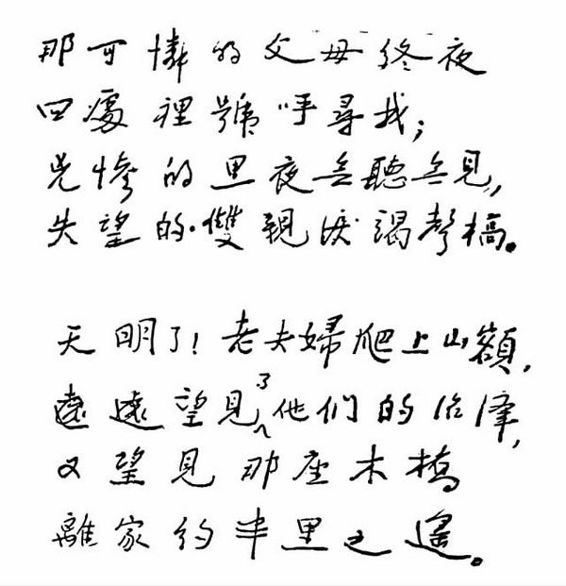 那可憐的父母终夜
四處裡號呼尋我；
兇惨的黑夜無聽無見，
失望的雙親淚渴聲槁。
天明了！老夫婦爬上山額，
遠遠望見了他们的沼澤，
又望見那座木橋
離家约半里之遥。